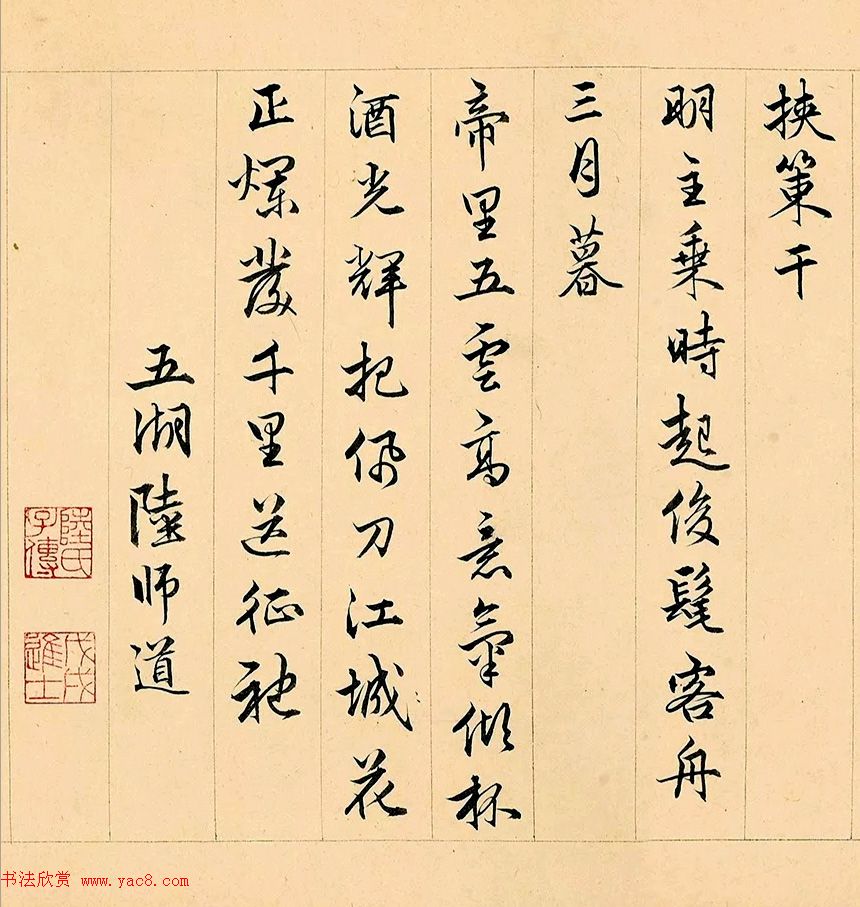 挟策干
明主乗時起俊髦客舟
三月暮
帝里五雲髙意氣傾杯
酒光輝把佩刀江城花
正爛發千里送征袍
五湖陸師道
陸氏子傳
戊戌進士
书法欣赏 www.yac8.com